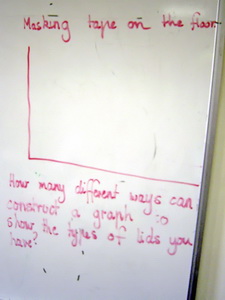 Masking tape on the floor
How many different ways can
construct a graph to
show the types of lids you
have?